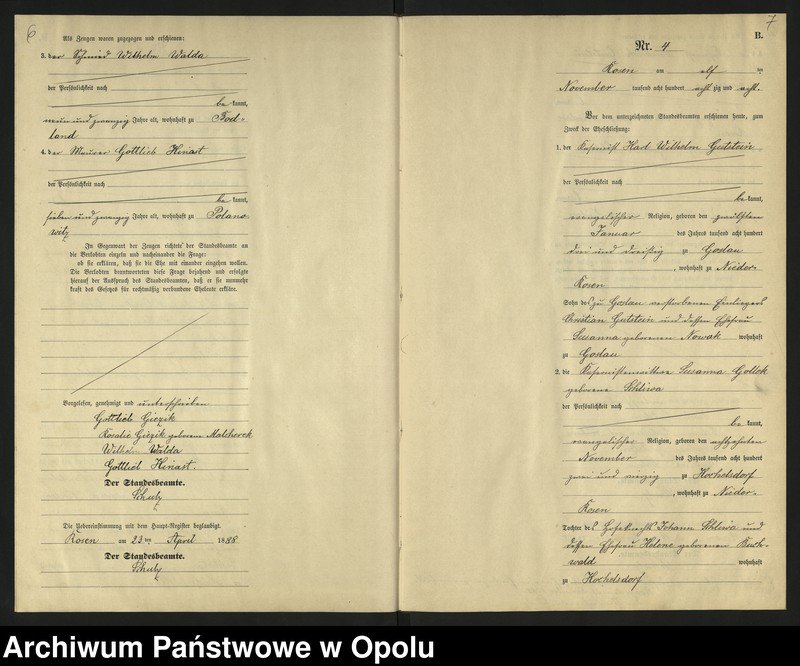 6
Als Zeugen waren zugezogen und erschienen:
3. der Schmied Wilhelm Walda
der Persönlichkeit nach
be kannt,
neun und zwanzig Jahre alt, wohnhaft zu Bod-
land
4. der Maurer Gottlieb Hinast
der Persönlichkeit nach
be kannt,
sieben und zwanzig Jahre alt, wohnhaft zu Polano-
witz
In Gegenwart der Zeugen richtete der Standesbeamte an
die Verlobten einzeln und nacheinander die Frage:
ob sie erklären, daß sie die Ehe mit einander eingehen wollen.
Die Verlobten beantworteten diese Frage bejahend und erfolgte
hierauf der Ausspruch des Standesbeamten, daß er sie nunmehr
kraft des Gesetzes für rechtmäßig verbundene Eheleute erkläre.
Vorgelesen, genehmigt und unterschrieben
Gottlieb Giezik
Rosalie Giezik geborene Malcherek
Wilhelm Walda
Gottlieb Hinast.
Der Standesbeamte.
Schulz
Die Uebereinstimmung mit dem Haupt-Register beglaubigt.
Rosen am 23 ten April 1888
Der Standesbeamte.
Schulz
7
B.
Nr. 4
Rosen am elf ten
November tausend acht hundert acht zig und acht.
Vor dem unterzeichneten Standesbeamten erschienen heute, zum
Zweck der Eheschließung:
1. der Karl Wilhelm Gutstein
der Persönlichkeit nach
be kannt,
evangelischer Religion, geboren den zwölften
Januar des Jahres tausend acht hundert
drei und dreißig zu Goslau
, wohnhaft zu Nieder-
Rosen
Sohn des zu Goslau verstorbenen Einliegers
Christian Gutstein und dessen Ehefrau
Susanna geborenen Nowak wohnhaft
zu Goslau
2. die Susanna Gollek
geborene Schliwa
der Persönlichkeit nach
be kannt,
evangelischer Religion, geboren den achtzehnten
November des Jahres tausend acht hundert
zwei und vierzig zu Hochelsdorf
, wohnhaft zu Nieder-
Rosen
Tochter des Hofeknechts Johann Schliwa und
dessen Ehefrau Helene geborenen Buch-
wald wohnhaft
zu Hochelsdorf
Archiwum Państwowe w Opolu